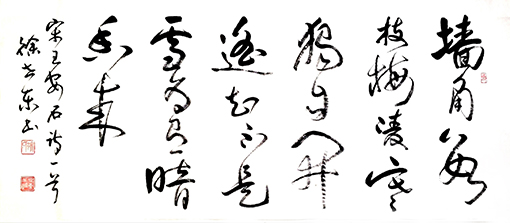 墙角数
枝梅凌寒
独自开
遥知不是
雪为有暗
香来
宋王安石诗一首
徐东书